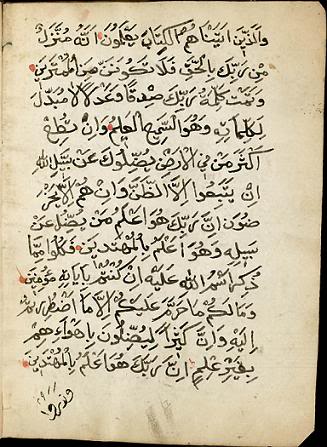 والذين اتيناهم الكتاب يعلمون انه منزل
من ربك بالحق فلا تكونن من الممترين
وتمت كلمة ربك صدقا وعدلا لا مبدل
لكلماته وهو السميع العليم وان تطع
اكثر من في الارض يضلوك عن سبيل الله
ان يتبعوا الا الظن وان هم الا يخر
صون ان ربك هو اعلم من يضل عن
سبيله وهو اعلم بالمهتدين فكلوا مما
ذكر اسم الله عليه ان كنتم باياته مؤمنين
وما لكم ما حرم عليكم الا ما اضطررتم
اليه وان كثيرا ليضلون باهواءهم
بغير علم ان ربك هو اعلم بالمهتدين
وذروا